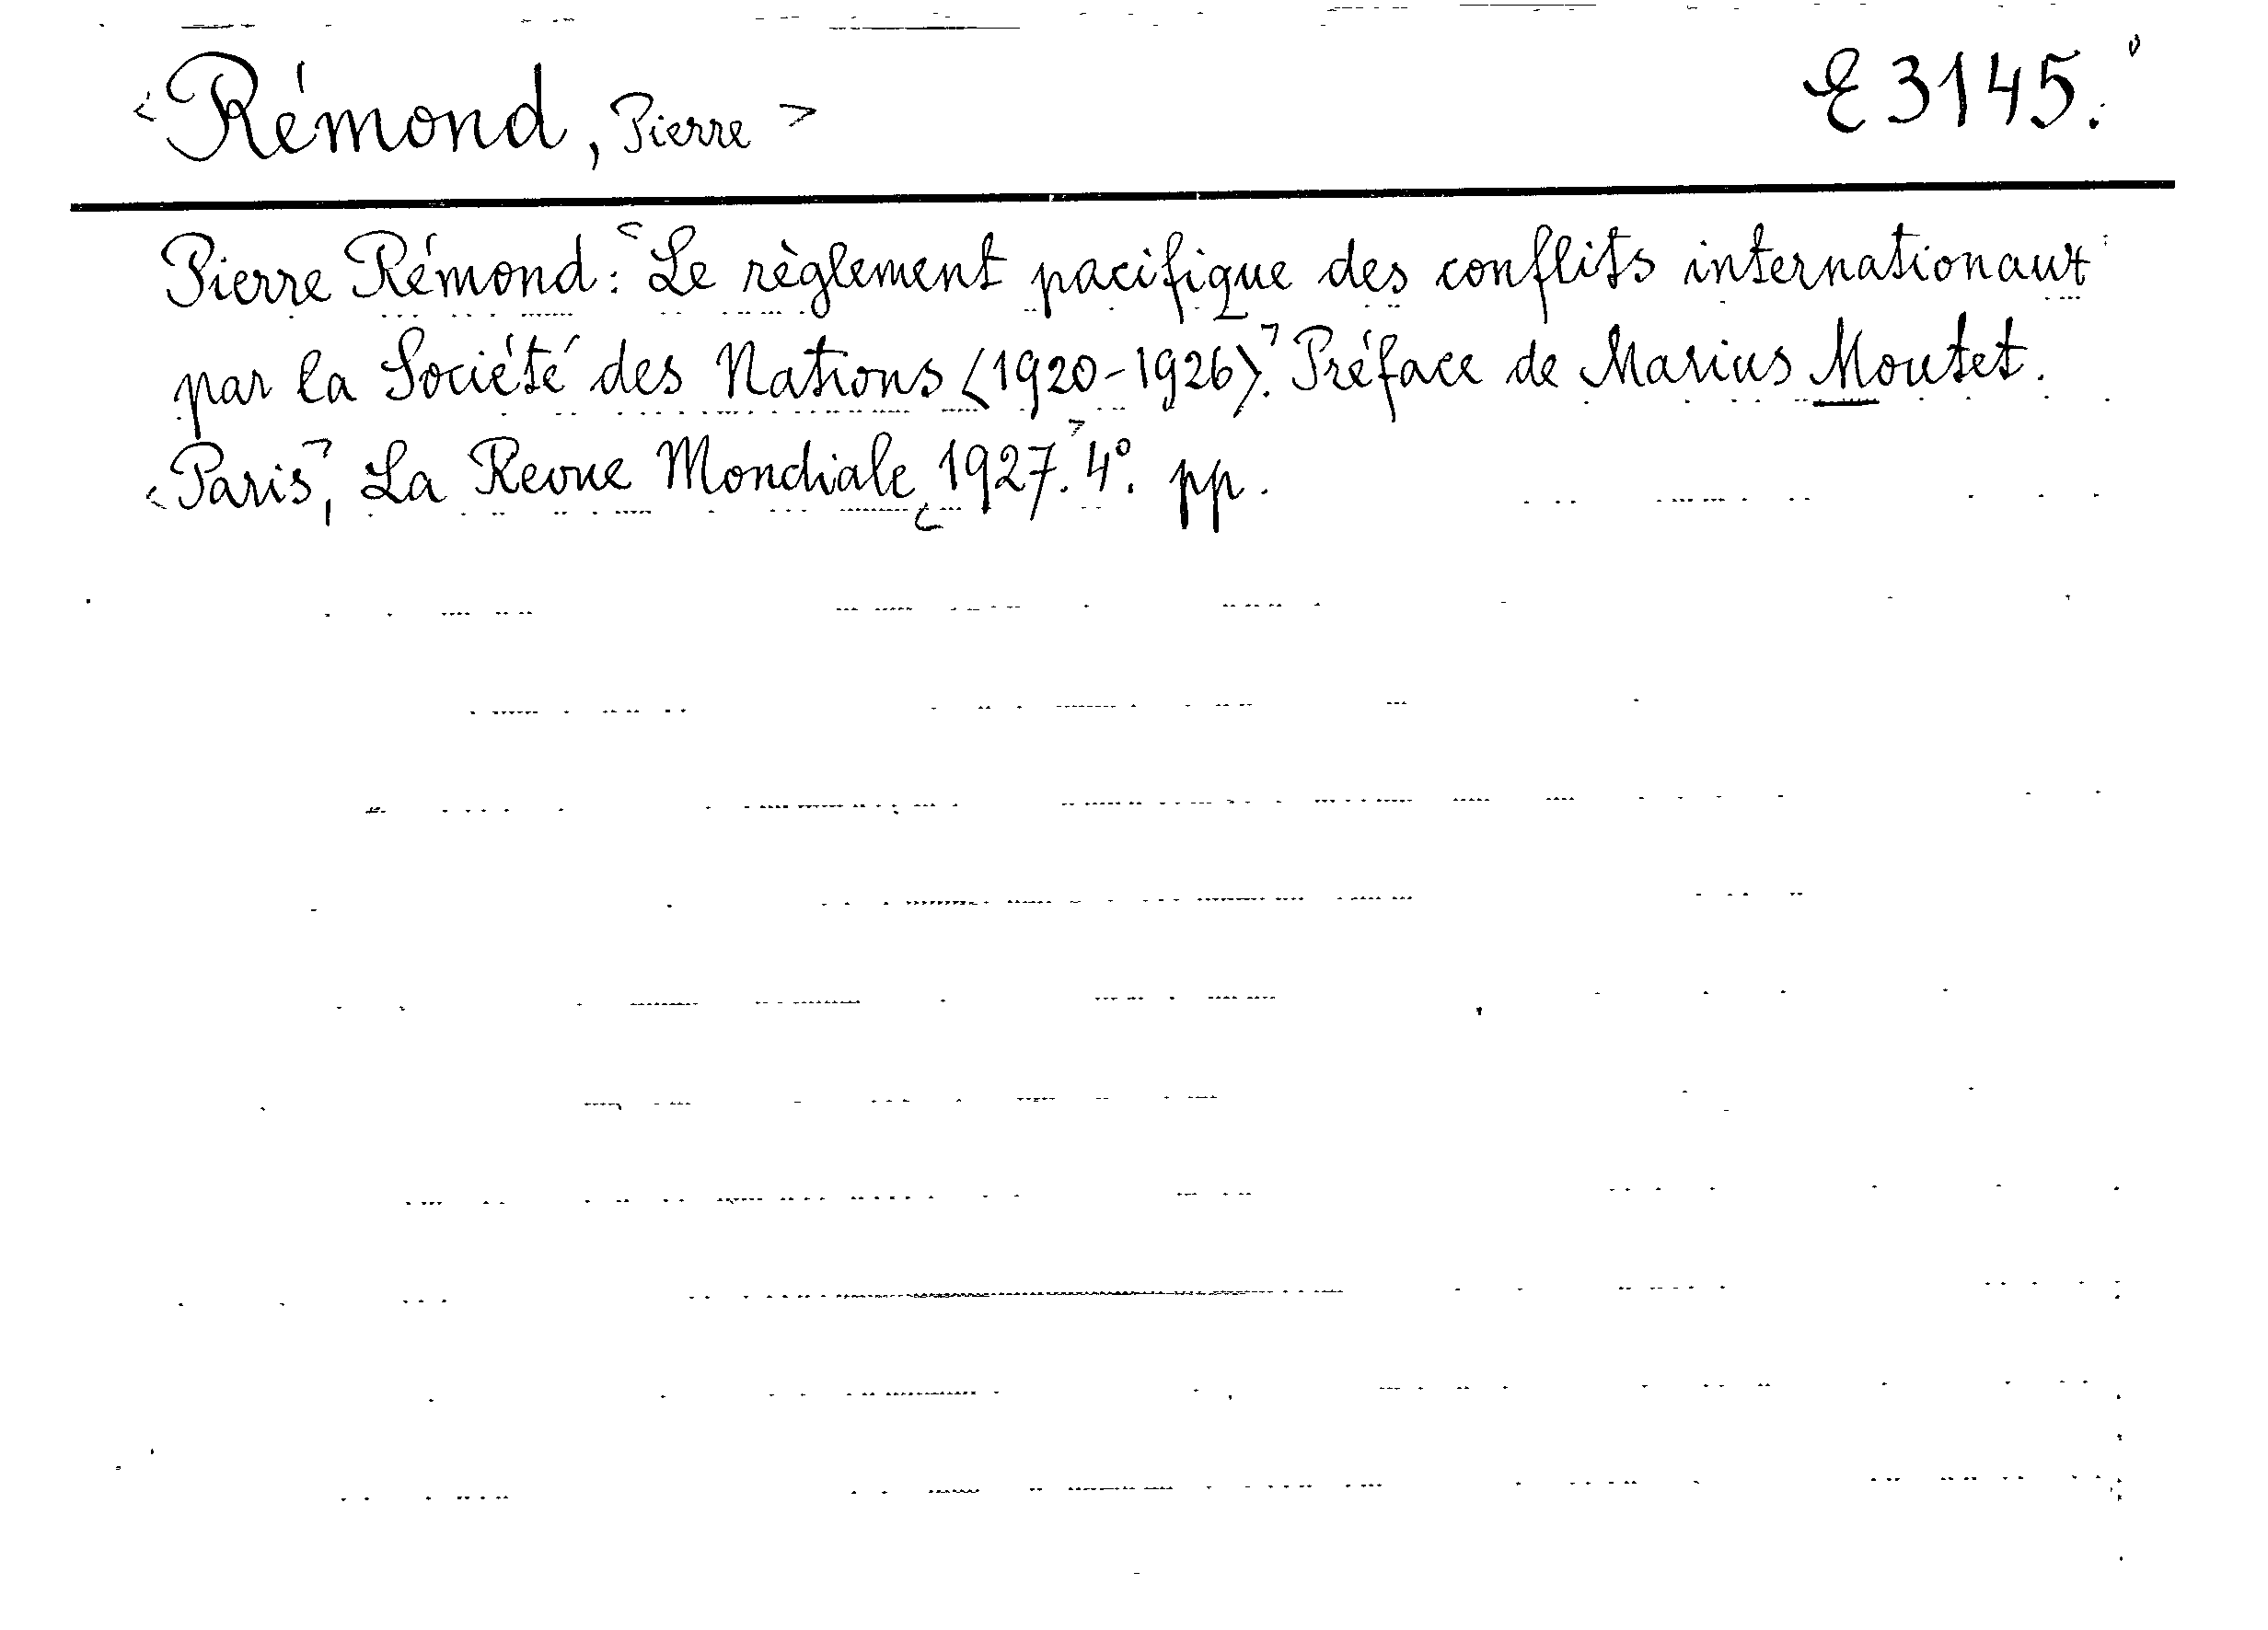 <Rémond, Pierre> E 3145.
Pierre Rémond: <Le règlement pacifique des conflits internationaux
par la Société des Nations (1920-1926).> Préface de Marius Moutet.
<Paris>, La Revue Mondiale <1927.> 4°. pp.